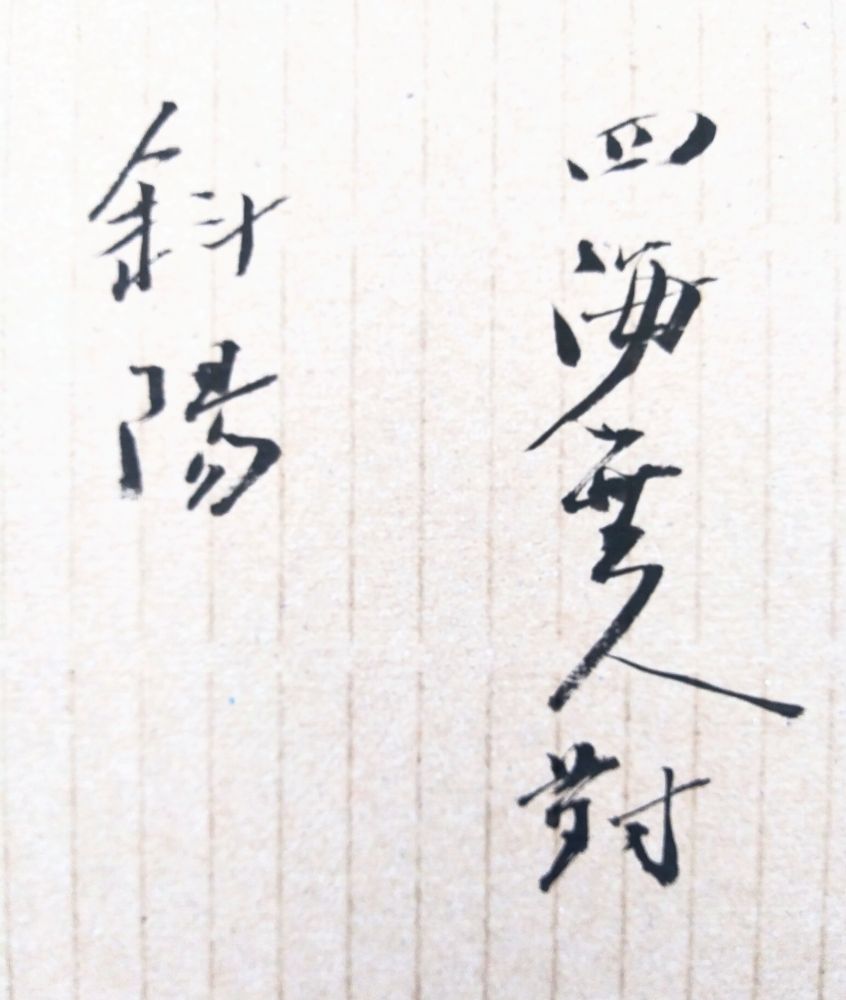 四海無人對
斜陽